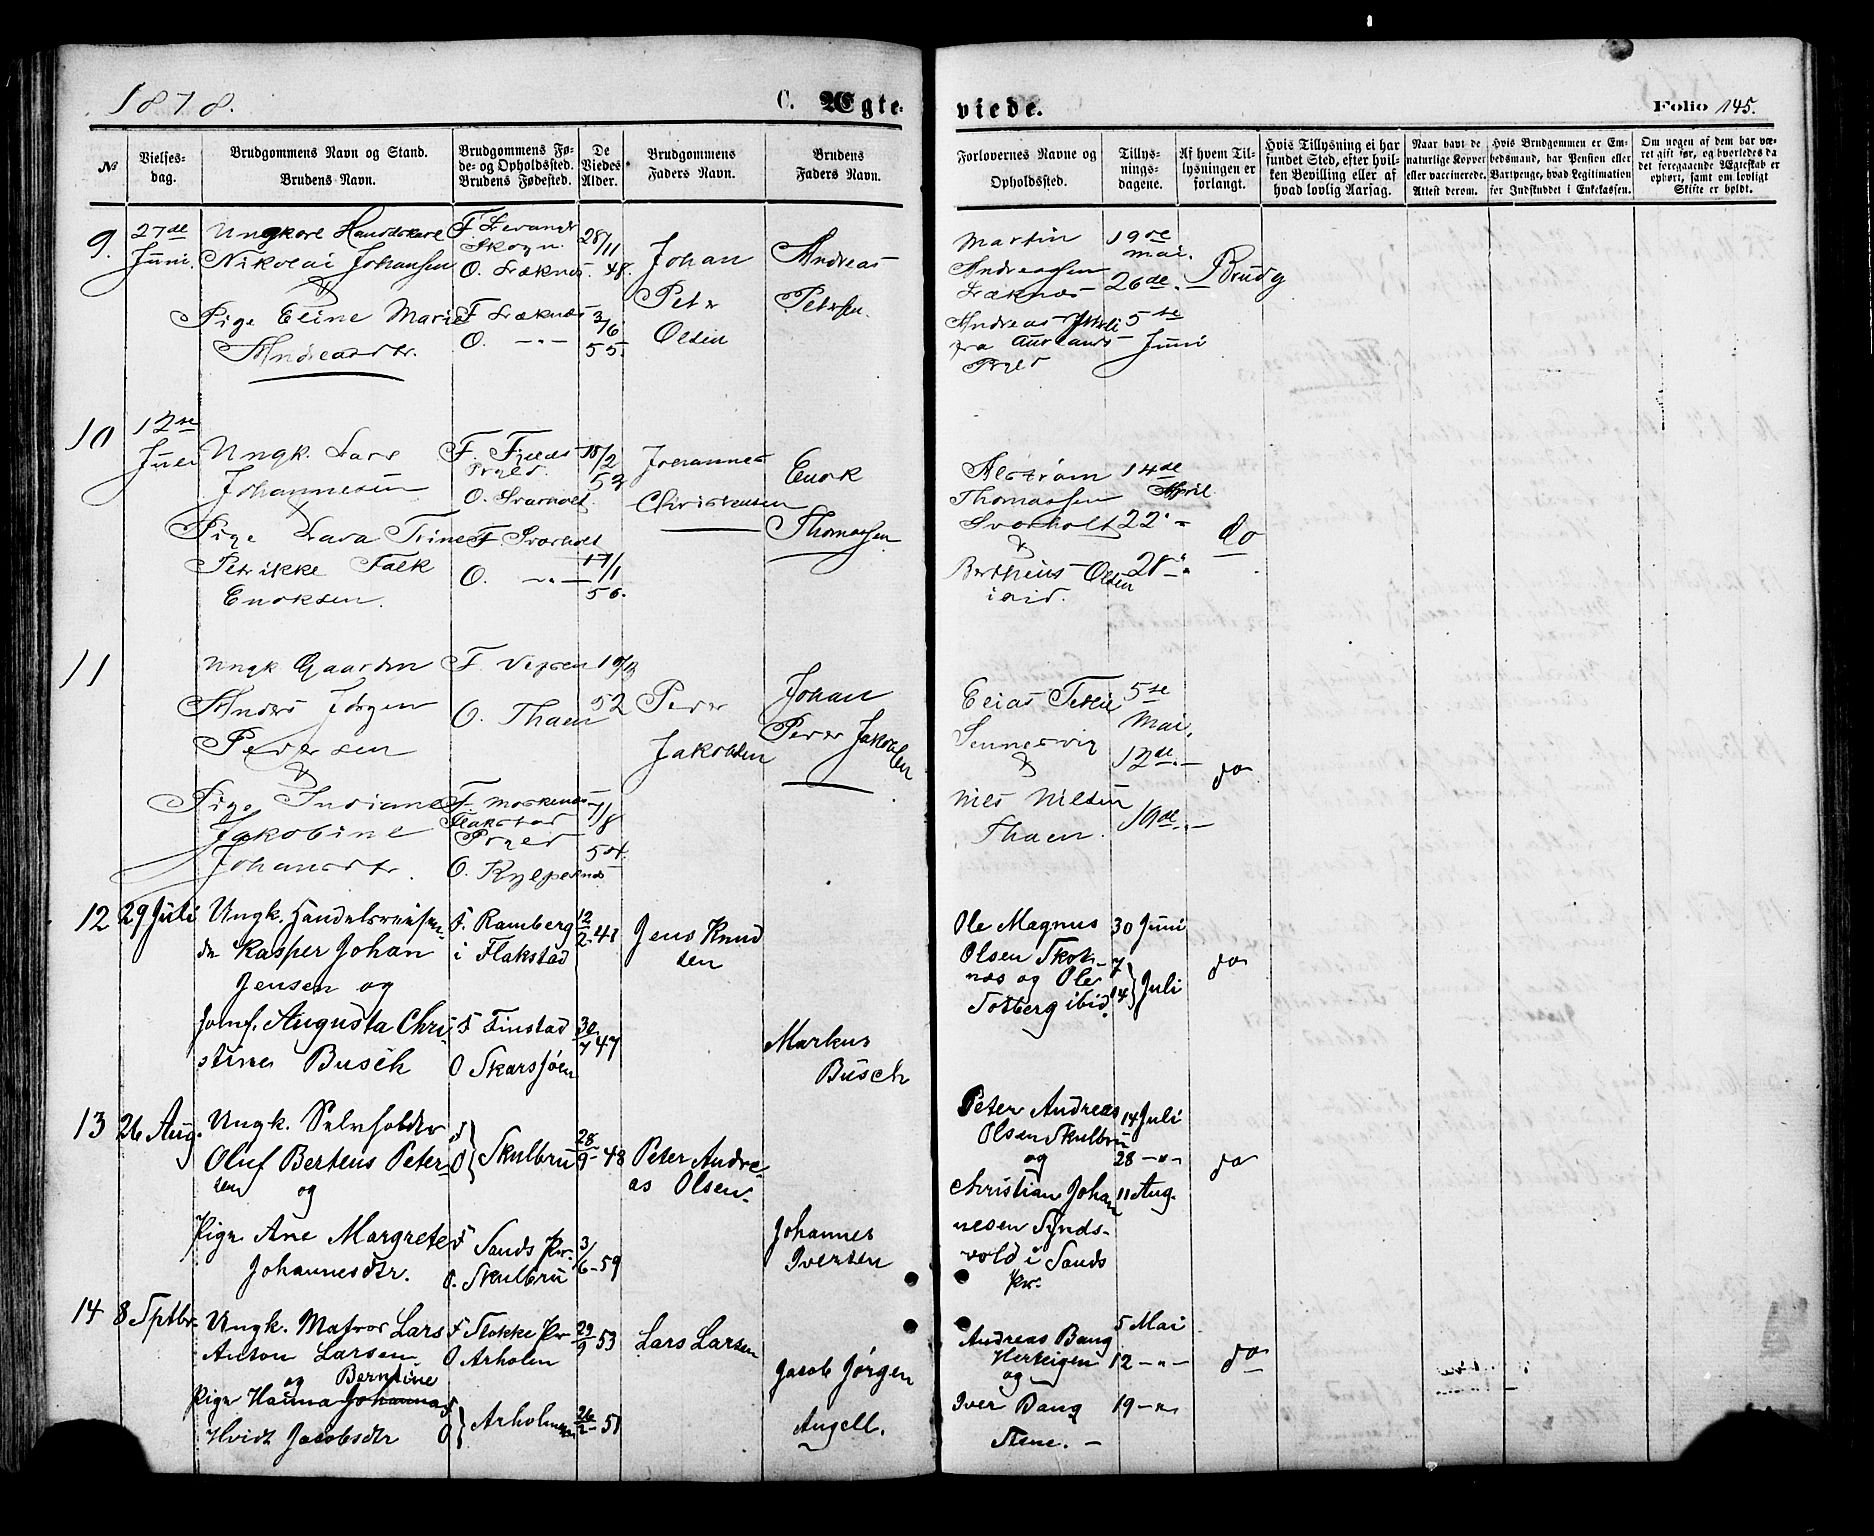 1878.
C. Ægte-
viede.
Folio 145.
№
Vielses-
dag.
Brudgommens Navn og Stand.
Brudens Navn.
Brudgommens Fø-
de- og Opholdssted.
Brudens Fødested.
De
Viedes
Alder.
Brudgommens
Faders Navn.
Brudens
Faders Navn.
Forlovernes Navne og
Opholdssted.
Tillys-
nings-
dagene.
Af hvem Til-
lysningen er
forlangt.
Hvis Tillysning ei har
fundet Sted, efter hvil-
ken Bevilling eller af
hvad lovlig Aarsag.
Naar havt de
naturlige Kopper
eller vaccinerede.
Attest derom.
Hvis Brudgommen er Em-
bedsmand, har Pension eller
Vartpenge, hvad Legitimation
for Indskuddet i Enkekassen.
Om nogen af dem har væ-
ret gift før, og hvorledes da
det foregaaende Ægteskab er
ophørt, samt om lovligt
Skifte er holdt.
9.
27de
Juni.
Ungkarl
Nikolai Johansen
&
Pige Eline Marie
Andreasdtr.
F.
Skogn.
O. Læknes.
F Læknes
O. -"-
28/11
48.
3/6
55.
Johan
Peter
Olsen
Andreas
Petersen.
Martin
Andreassen
Læknes
Andreas
fra
Prgld
19de
mai.
26de. -
5te
Juni
Brudg
10
12te
Juli
Ungk. Lars
Johannesen
&
Pige Lava Trine
Petrikke Falk
Enoksen.
F.
Prgld.
O. Svarholt.
F. Svarholt
O. -"-
18/2
53
17/1
56.
Johannes
Christensen
Enok
Thomassen
Alstrøm
Thomassen
Svarholt
&
Bertheus Olsen
ibid.
14de
April
22. "
28 "
do
11
Ungk Gaardm
Anders Jørgen
Pedersen
&
Pige Indiane
Jakobine
Johansdtr.
F.
O. Thaen
F. Moskenes
Flakstad
Prgld
O.
52
7/8
54.
Peder
Jakobsen
Johan
Peder Jakobsen
Elias
Sennesvig
&
Nils Nilsen
Thaen.
5te
Mai.
12te. -
19de. -
do
12
29 Juli
Ungk. Handelsreisen-
de Kasper Johan
Jensen og
Jomf. Augusta Chri-
stine Busch
F. Ramberg
i Flakstad
F Finstad
O Skarsjøen
12/2 41
30/7 47
Jens Knud
sen
Markus
Busch
Ole Magnus
Olsen Skot-
næs og Ole
Solberg ibid.
30 Juni
7
14 } Juli
do
13
26 Aug.
Ungk. Selvholder
Oluf Berteus Peter-
sen og
Pige Ane Margrete
Johannesdtr.
F
O } Skulbru
F Sands Pr.
O. Skulbru
28/9 48
3/6 - 59
Peter Andre-
as Olsen
Johannes
Iversen
Peter Andreas
Olsen Skulbru
og
Christian Johan
nesen Synds-
vold i Sands
Pr.
14 Juli
28 -"-
11 Aug.
do
14
8 Septbr.
Ungk. Matros Lars
Anton Larsen
og Berntine
Pige Hanna Johanna
Hvidt Jacobsdtr
F Stokke Pr
O Arholm
F
O } Arholmen
29/9 53
26/2 - 51
Lars Larsen
Jacob Jørgen
Angell.
Andreas Bang
og
Iver Bang
Stene. -
5 Mai
12 -"-
19 -"-
do